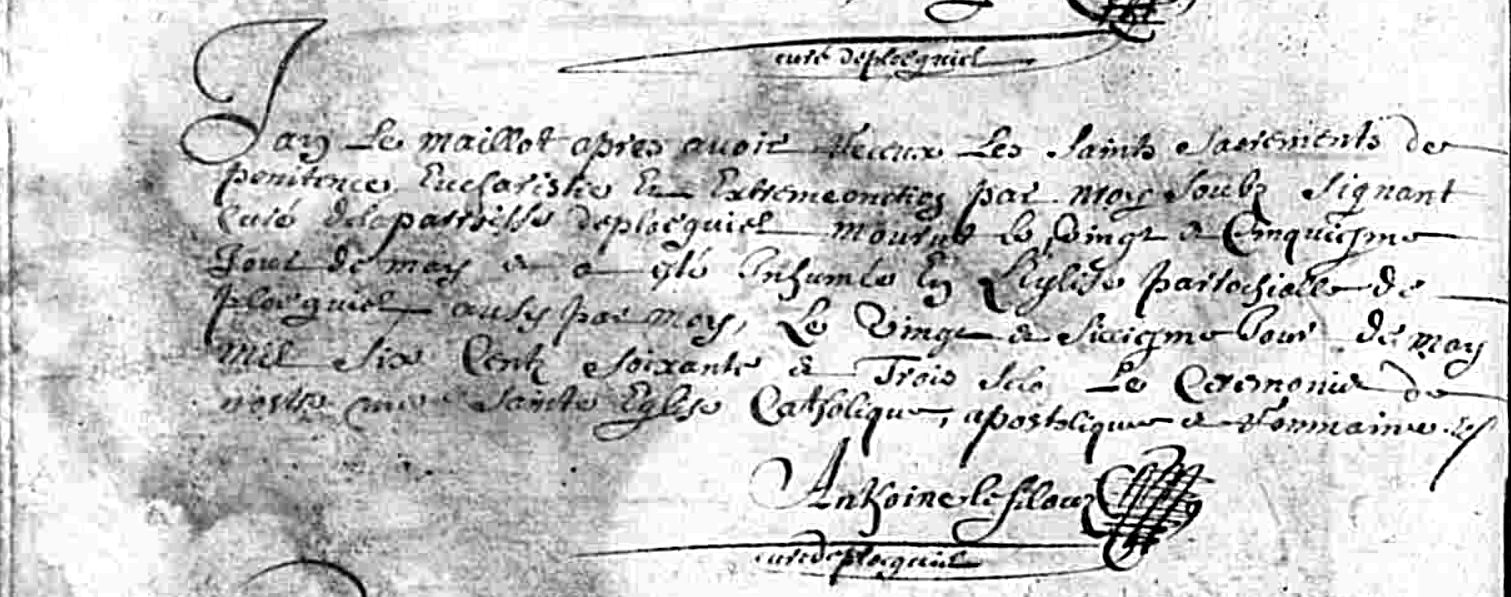 curé deplocquiel
Jan Le maillot apres auoir Receux Les Saints Sacrements de
penitence Eucharistie En Extremeonction par moy Soubz signant
Curé delaparroisse deplocquiel mourut le vingt & Cinquiesme
Jour de may & a esté Inhumée En L'Eglise parrochialle de
plocquiel aussy par moy, Le vingt & Sixiesme Jour de may
mil Six Centz soixante & Trois selo Le Ceremonie de
nostre mere Sainte Eglise Catholique, apostolique & Rommaine
Anthoine le filoux
curé deplocquiel